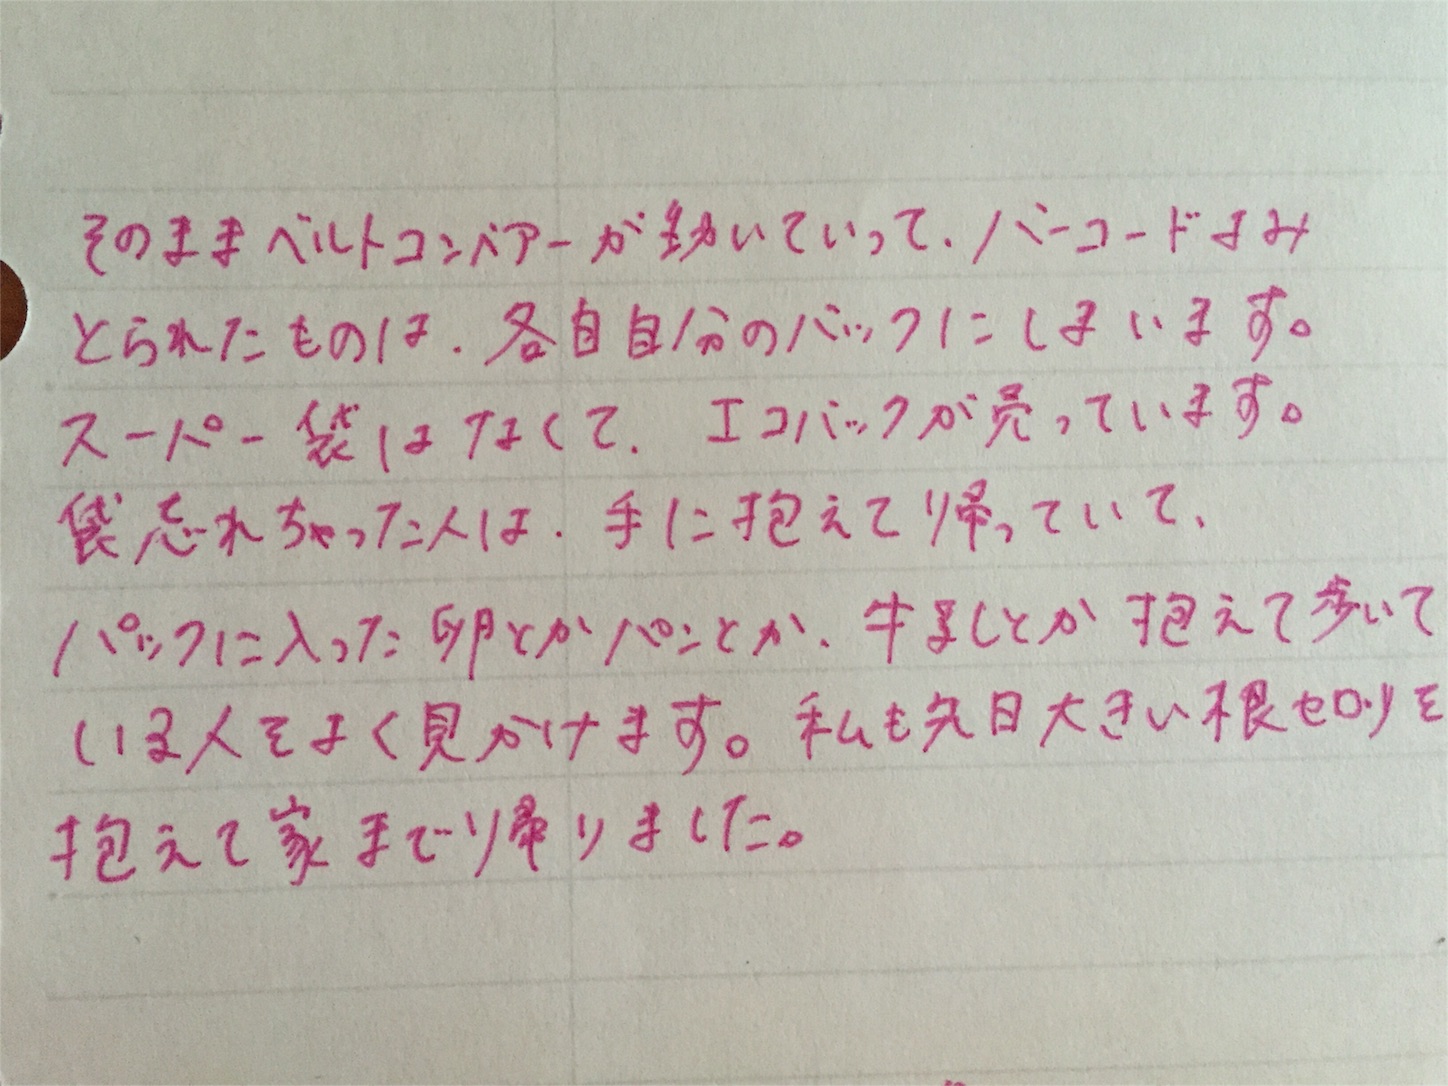 そのままベルトコンベアーが動いていって、バーコードよみ
とられたものは、各自自分のバックにしまいます。
スーパー袋はなくて、エコバックが売っています。
袋忘れちゃった人は、手に抱えて帰っていて、
パックに入った卵とかパンとか、牛乳とか抱えて歩いて
いる人をよく見かけます。私も先日大きい根セロリを
抱えて家まで帰りました。